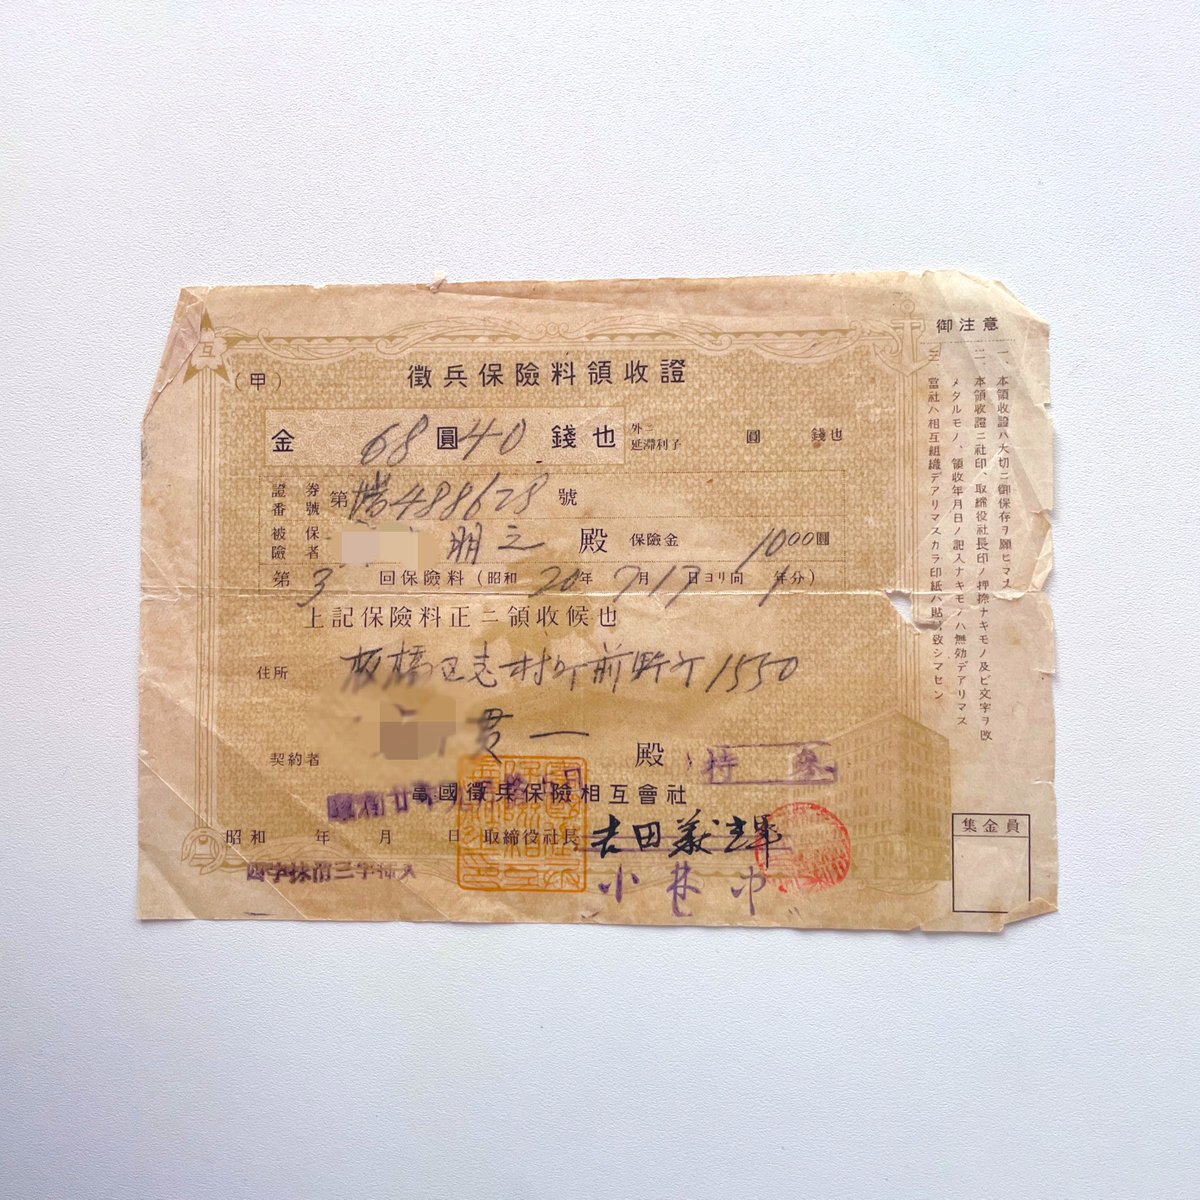 互
(甲)
徵兵保險料領收證
金 68 圓 40 錢也 外ニ延滯利子 圓 錢也
證券番號 第 488628 號
被保險者 明之 殿 保險金 1000圓
第 3 回保險料(昭和 20年 7月17日ヨリ向 1 年分)
上記保險料正ニ領收候也
住所 板橋区志村町前野町1550
契約者 貫一 殿
持參
富國徵兵保險相互會社
昭和 年 月 日 取締役社長 吉田義輝
四字抹消三字挿入
小林
御注意
一、本領收證ハ大切ニ御保存ヲ願ヒマス
二、本領收證ニ社印、取締役社長印ノ押捺ナキモノ及ビ文字ヲ改
メタルモノ、領收年月日ノ記入ナキモノハ無効デアリマス
三、當社ハ相互組織デアリマスカラ印紙ハ貼 致シマセン
集金員